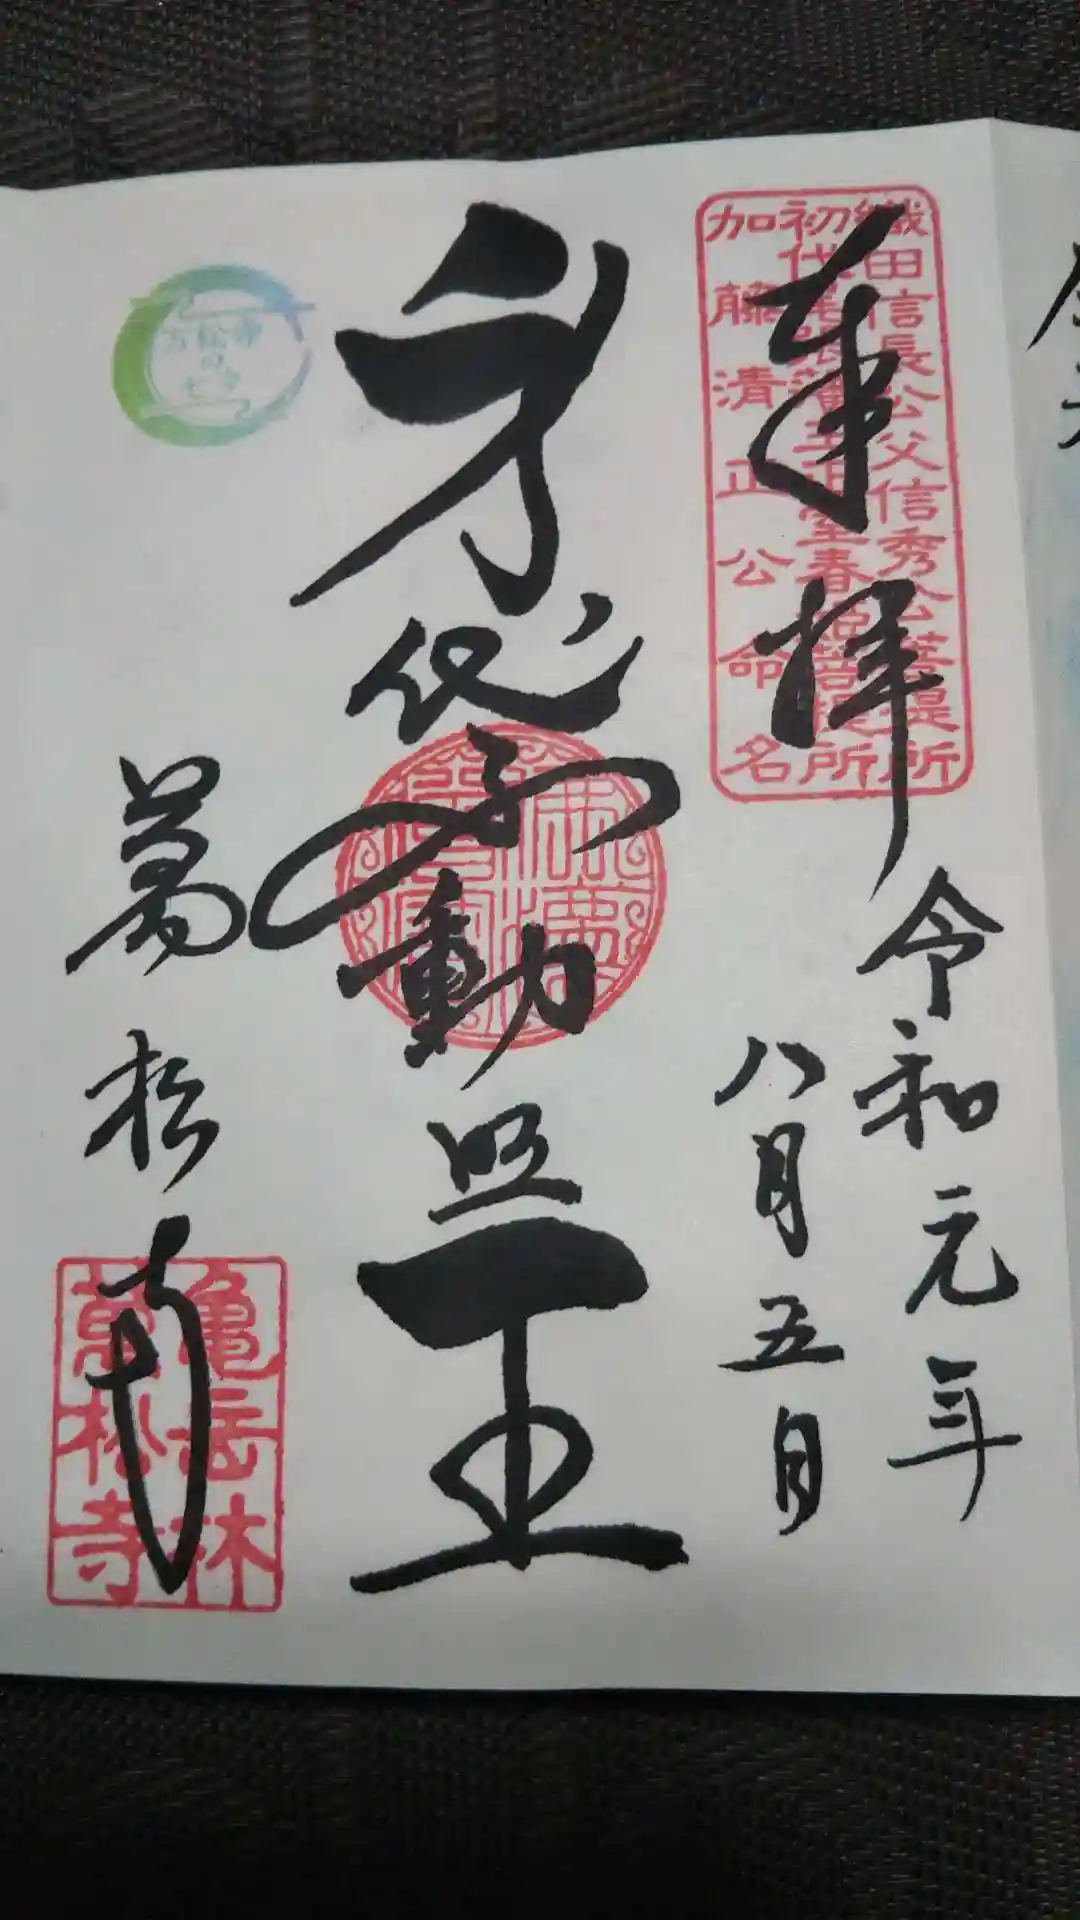 奉拝
織田信長公父信秀公菩提所
初代尾張藩主正室春姫菩提所
加藤清正公命名
令和元年
八月五日
身代不動明王
萬松寺
亀岳林
萬松寺